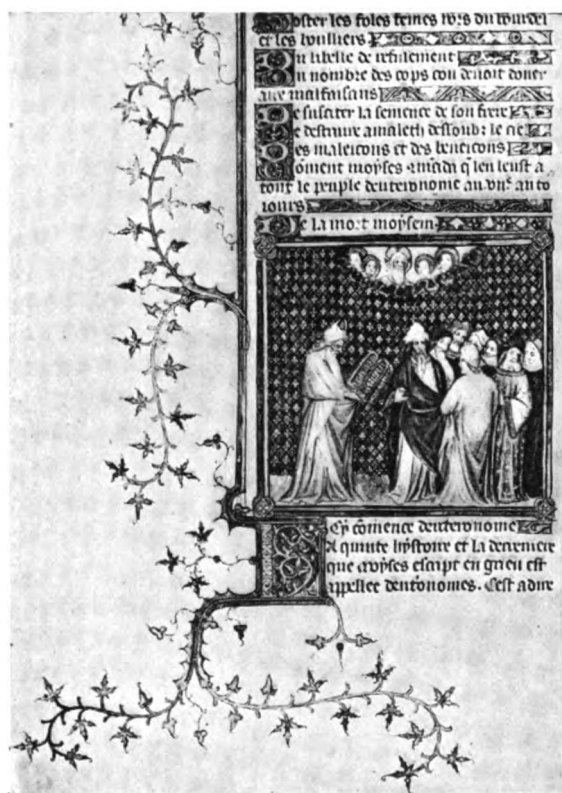 oster les foles femes hors du bourdel
et les houlliers
Du libelle de refusement
Du nombre des cops con devoit doner
aux malfaisans
De susciter la semence de son frere
De destruire amalech dessoubz le ciel
Des maleicons et des beneicons
Coment moyses
tout le peuple deuteronome au viie an to
iours
De la mort moysem
Cy cōmence deuteronome
La quinte hystoire et la derreniere
que moyses escript en grieu est
appellee deutonomes. Cest a dire